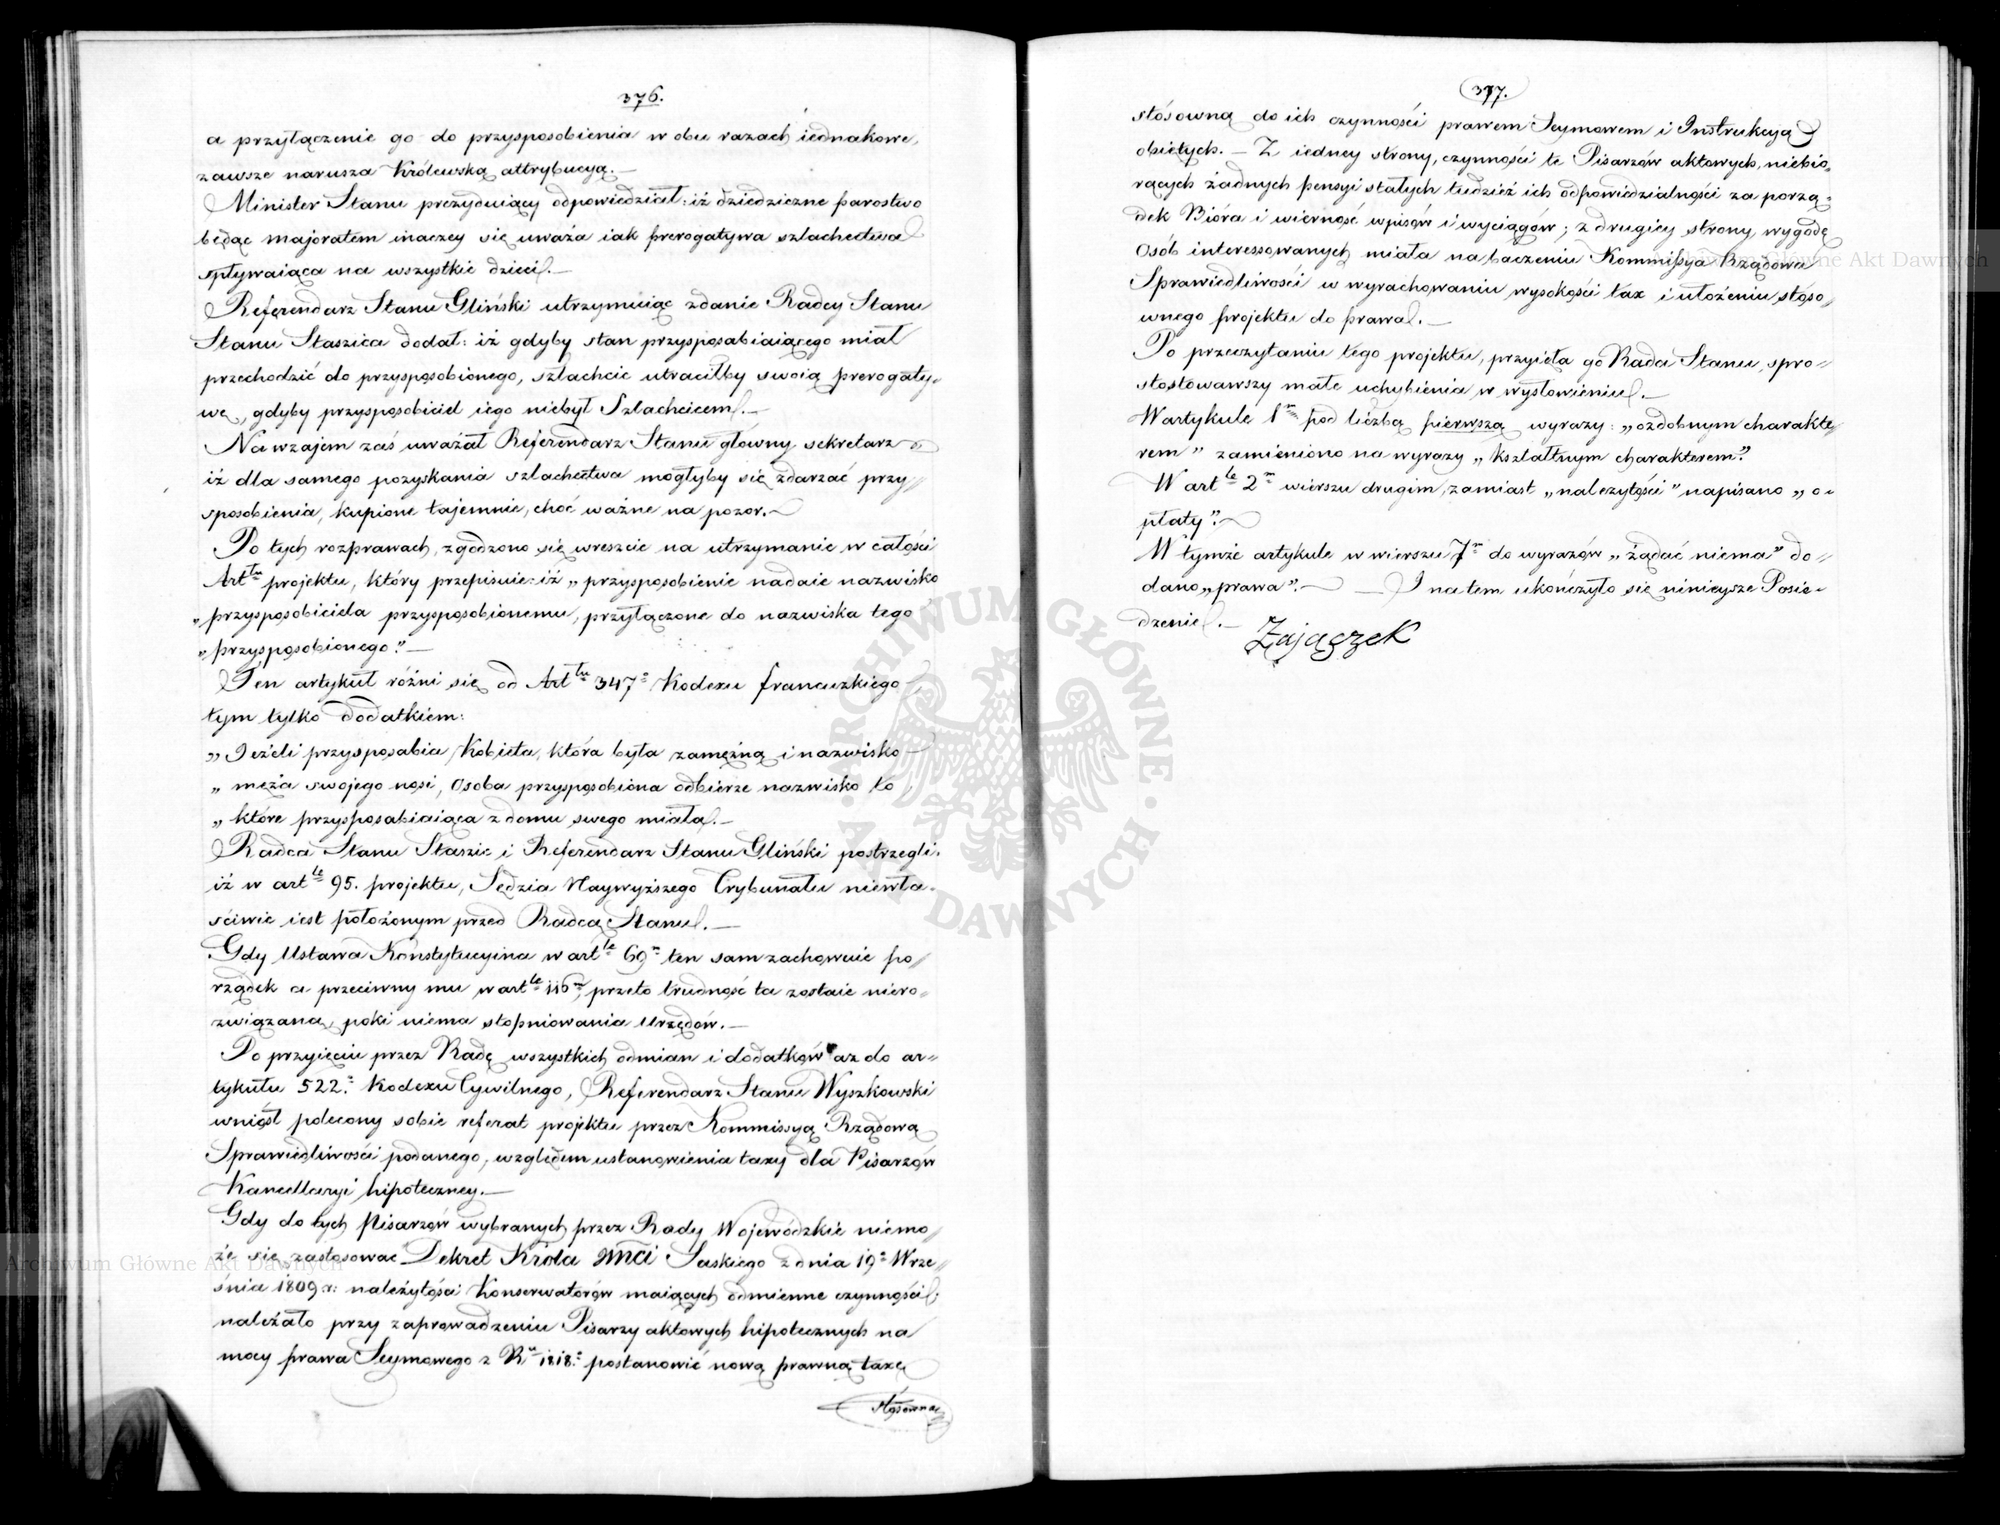 376.
a przyłączenie go do przysposobienia w obu razach iednakowe,
zawsze narusza Królewską attrybucyą.—
Minister Stanu prezyduiący odpowiedział: iż dziedziczne parostwo
będąc majoratem inaczey się uważa iak prerogatywa szlachectwa
spływaiąca na wszystkie dzieci.—
Referendarz Stanu Gliński utrzymuiąc zdanie Radcy Stanu
Stanu Staszica dodał: iż gdyby stan przysposabiaiącego miał
przechodzić do przysposobionego, szlachcic utraciłby swoią prerogaty-
wę, gdyby przysposobiciel iego niebył Szlachcicem.—
Nawzajem zaś uważał Referendarz Stanu główny sekretarz
iż dla samego pozyskania szlachectwa mogłyby się zdarzać przy-
sposobienia, kupione tajemnie, choć ważne na pozor.—
Po tych rozprawach, zgodzono się wreszcie na utrzymanie w całości
Art:tu projektu, który przepisuie: iż „przysposobienie nadaie nazwisko
„przysposobiciela przysposobionemu, przyłączone do nazwiska tego
„przysposobionego."—
Ten artykuł różni się od Art:tu 347o Kodexu francuzkiego
tym tylko dodatkiem:
„Jeżeli przysposabia Kobieta, która była zamężną i nazwisko
„męża swojego nosi, osoba przysposobiona odbierze nazwisko to
„które przysposabiaiąca z domu swego miała.—
Radca Stanu Staszic i Referendarz Stanu Gliński postrzegli,
iż w art:le 95. projektu, Sędzia Naywyższego Trybunału niewła-
ściwie iest położonym przed Radcą Stanu.—
Gdy Ustawa Konstytucyina w art:le 69m ten sam zachowuie po-
rządek a przeciwny mu w art:le 116m, przeto trudność ta zostaie niero-
związana, poki niema stopniowania Urzędów.—
Po przyięciu przez Radę wszystkich odmian i dodatków aż do ar-
tykułu 522o Kodexu Cywilnego, Referendarz Stanu Wyszkowski
wniósł polecony sobie referat projektu przez Kommissyą Rządową
Sprawiedliwości podanego, względem ustanowienia taxy dla Pisarzów
Kancellaryi hipoteczney.—
Gdy do tych Pisarzów wybranych przez Rady Wojewódzkie niemo-
że się zastosować Dekret Króla JMCi Saskiego z dnia 19o Wrze-
śnia 1809 r: należytości Konserwatorów maiących odmienne czynności;
należało przy zaprowadzeniu Pisarzy aktowych hipotecznych na
mocy prawa Seymowego z Ru 1818o postanowić nową prawną taxę
stósowną
377.
stósowną do ich czynności prawem Seymowem i Instrukcyą
obiętych.— Z iedney strony, czynności te Pisarzów aktowych, niebio-
rących żadnych pensyi stałych tudzież ich odpowiedzialności za porzą-
dek Bióra i wierność wpisów i wyciągów; z drugiey strony, wygodę
osób interessowanych miała na baczeniu Kommissya Rządowa
Sprawiedliwości w wyrachowaniu wysokości tax i ułożeniu stóso-
wnego projektu do prawa.—
Po przeczytaniu tego projektu, przyięła go Rada Stanu, spro-
stostowawszy małe uchybienia w wysłowieniu.—
W artykule 1m pod liczbą pierwszą wyrazy: „ozdobnym charakte-
rem" zamieniono na wyrazy „kształtnym charakterem".
W art:le 2m wierszu drugim, zamiast „należytości" napisano „o-
płaty".—
W tymże artykule w wierszu 7m do wyrazów „żądać niema" do-
dano „prawa".— — I na tem ukończyło się ninieysze Posie-
dzenie.—
Zajączek
ARCHIWUM GŁÓWNE AKT DAWNYCH
Archiwum Główne Akt Dawnych
Archiwum Główne Akt Dawnych